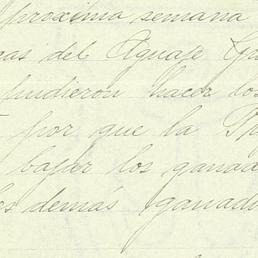 próxima semana
cas del Aguaje
pudieron hacer los
por que la
bajar los ganad
los demás ganad